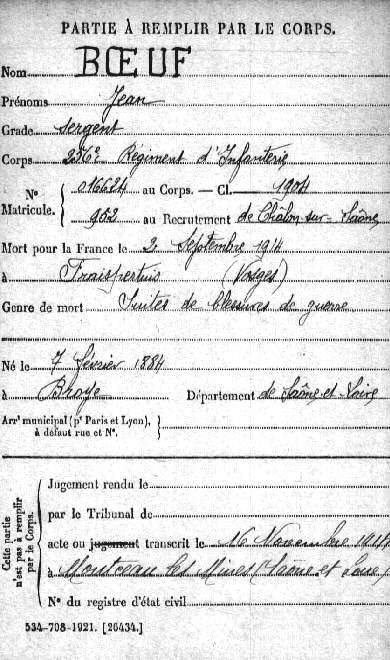 PARTIE À REMPLIR PAR LE CORPS.
Nom BŒUF
Prénoms Jean
Grade Sergent
Corps Régiment d'Infanterie
Nº Matricule. { au Corps. — Cl. 1904
962 au Recrutement de Châlon-sur-Saône
Mort pour la France le 2 Septembre 1914
à Fraispertuis (Vosges)
Genre de mort Suites de blessures de guerre
Né le 7 février 1884
à Broye Département de Saône et Loire
Arrt municipal (pr Paris et Lyon), à défaut rue et Nº. }
Cette partie n'est pas à remplir par le Corps.
Jugement rendu le
par le Tribunal de
acte ou jugement transcrit le 16 Novembre
à Montceau les Mines (Saône et Loire)
Nº du registre d'état civil
534-708-1921. [26434.]